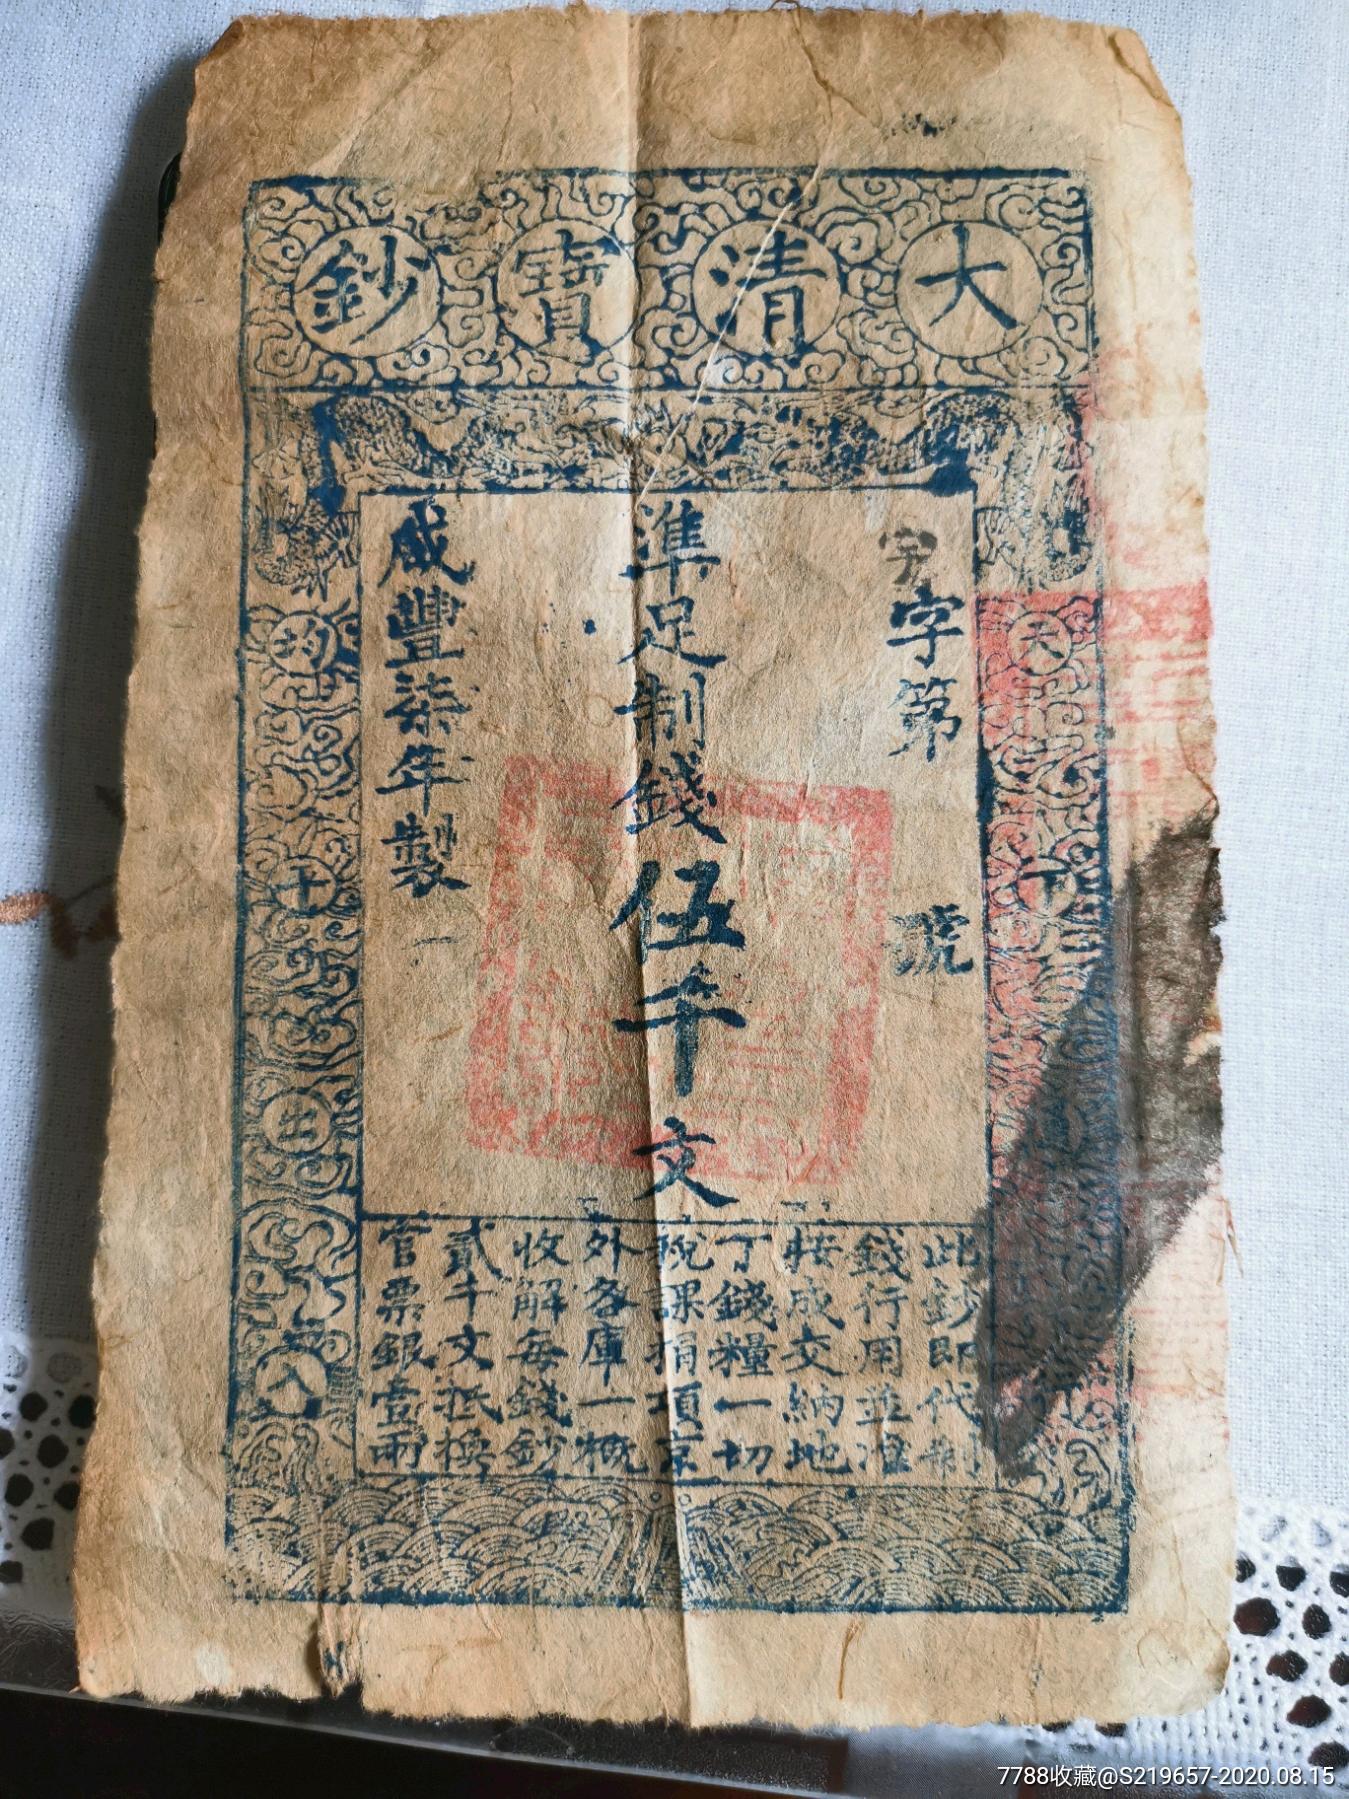 大清寶鈔
天下
均平出入
字第 號
準足制錢伍千文
咸豐柒年製
此鈔即代制
錢行用並准
按成交納地
丁錢糧一切
稅課捐項京
外各庫一概
收解每錢鈔
貳千文抵換
官票銀壹兩
7788收藏@S219657-2020.08.15